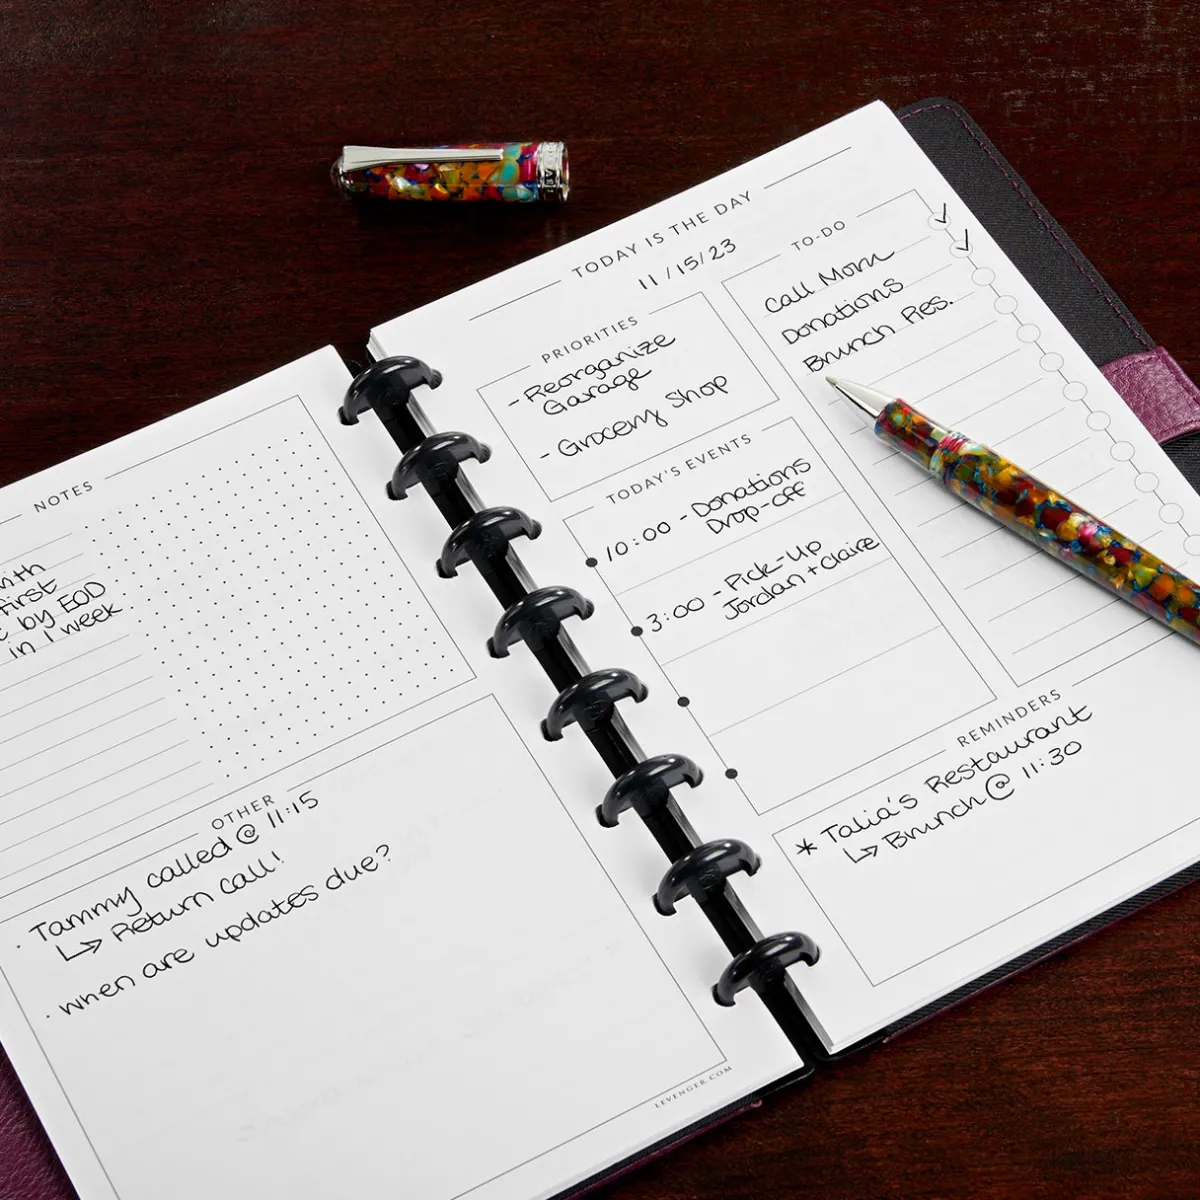 NOTES
first
by EOD
in 1 week
OTHER
Tammy called @ 11:15
↳ Return call!
· when are updates due?
LEVENGER.COM
TODAY IS THE DAY
11/15/23
PRIORITIES
- Reorganize
Garage
- Grocery Shop
TODAY'S EVENTS
10:00 - Donations
Drop-off
3:00 - Pick-Up
Jordan + Claire
TO-DO
Call Mom
Donations
Brunch Res.
REMINDERS
* Talia's Restaurant
↳ Brunch @ 11:30